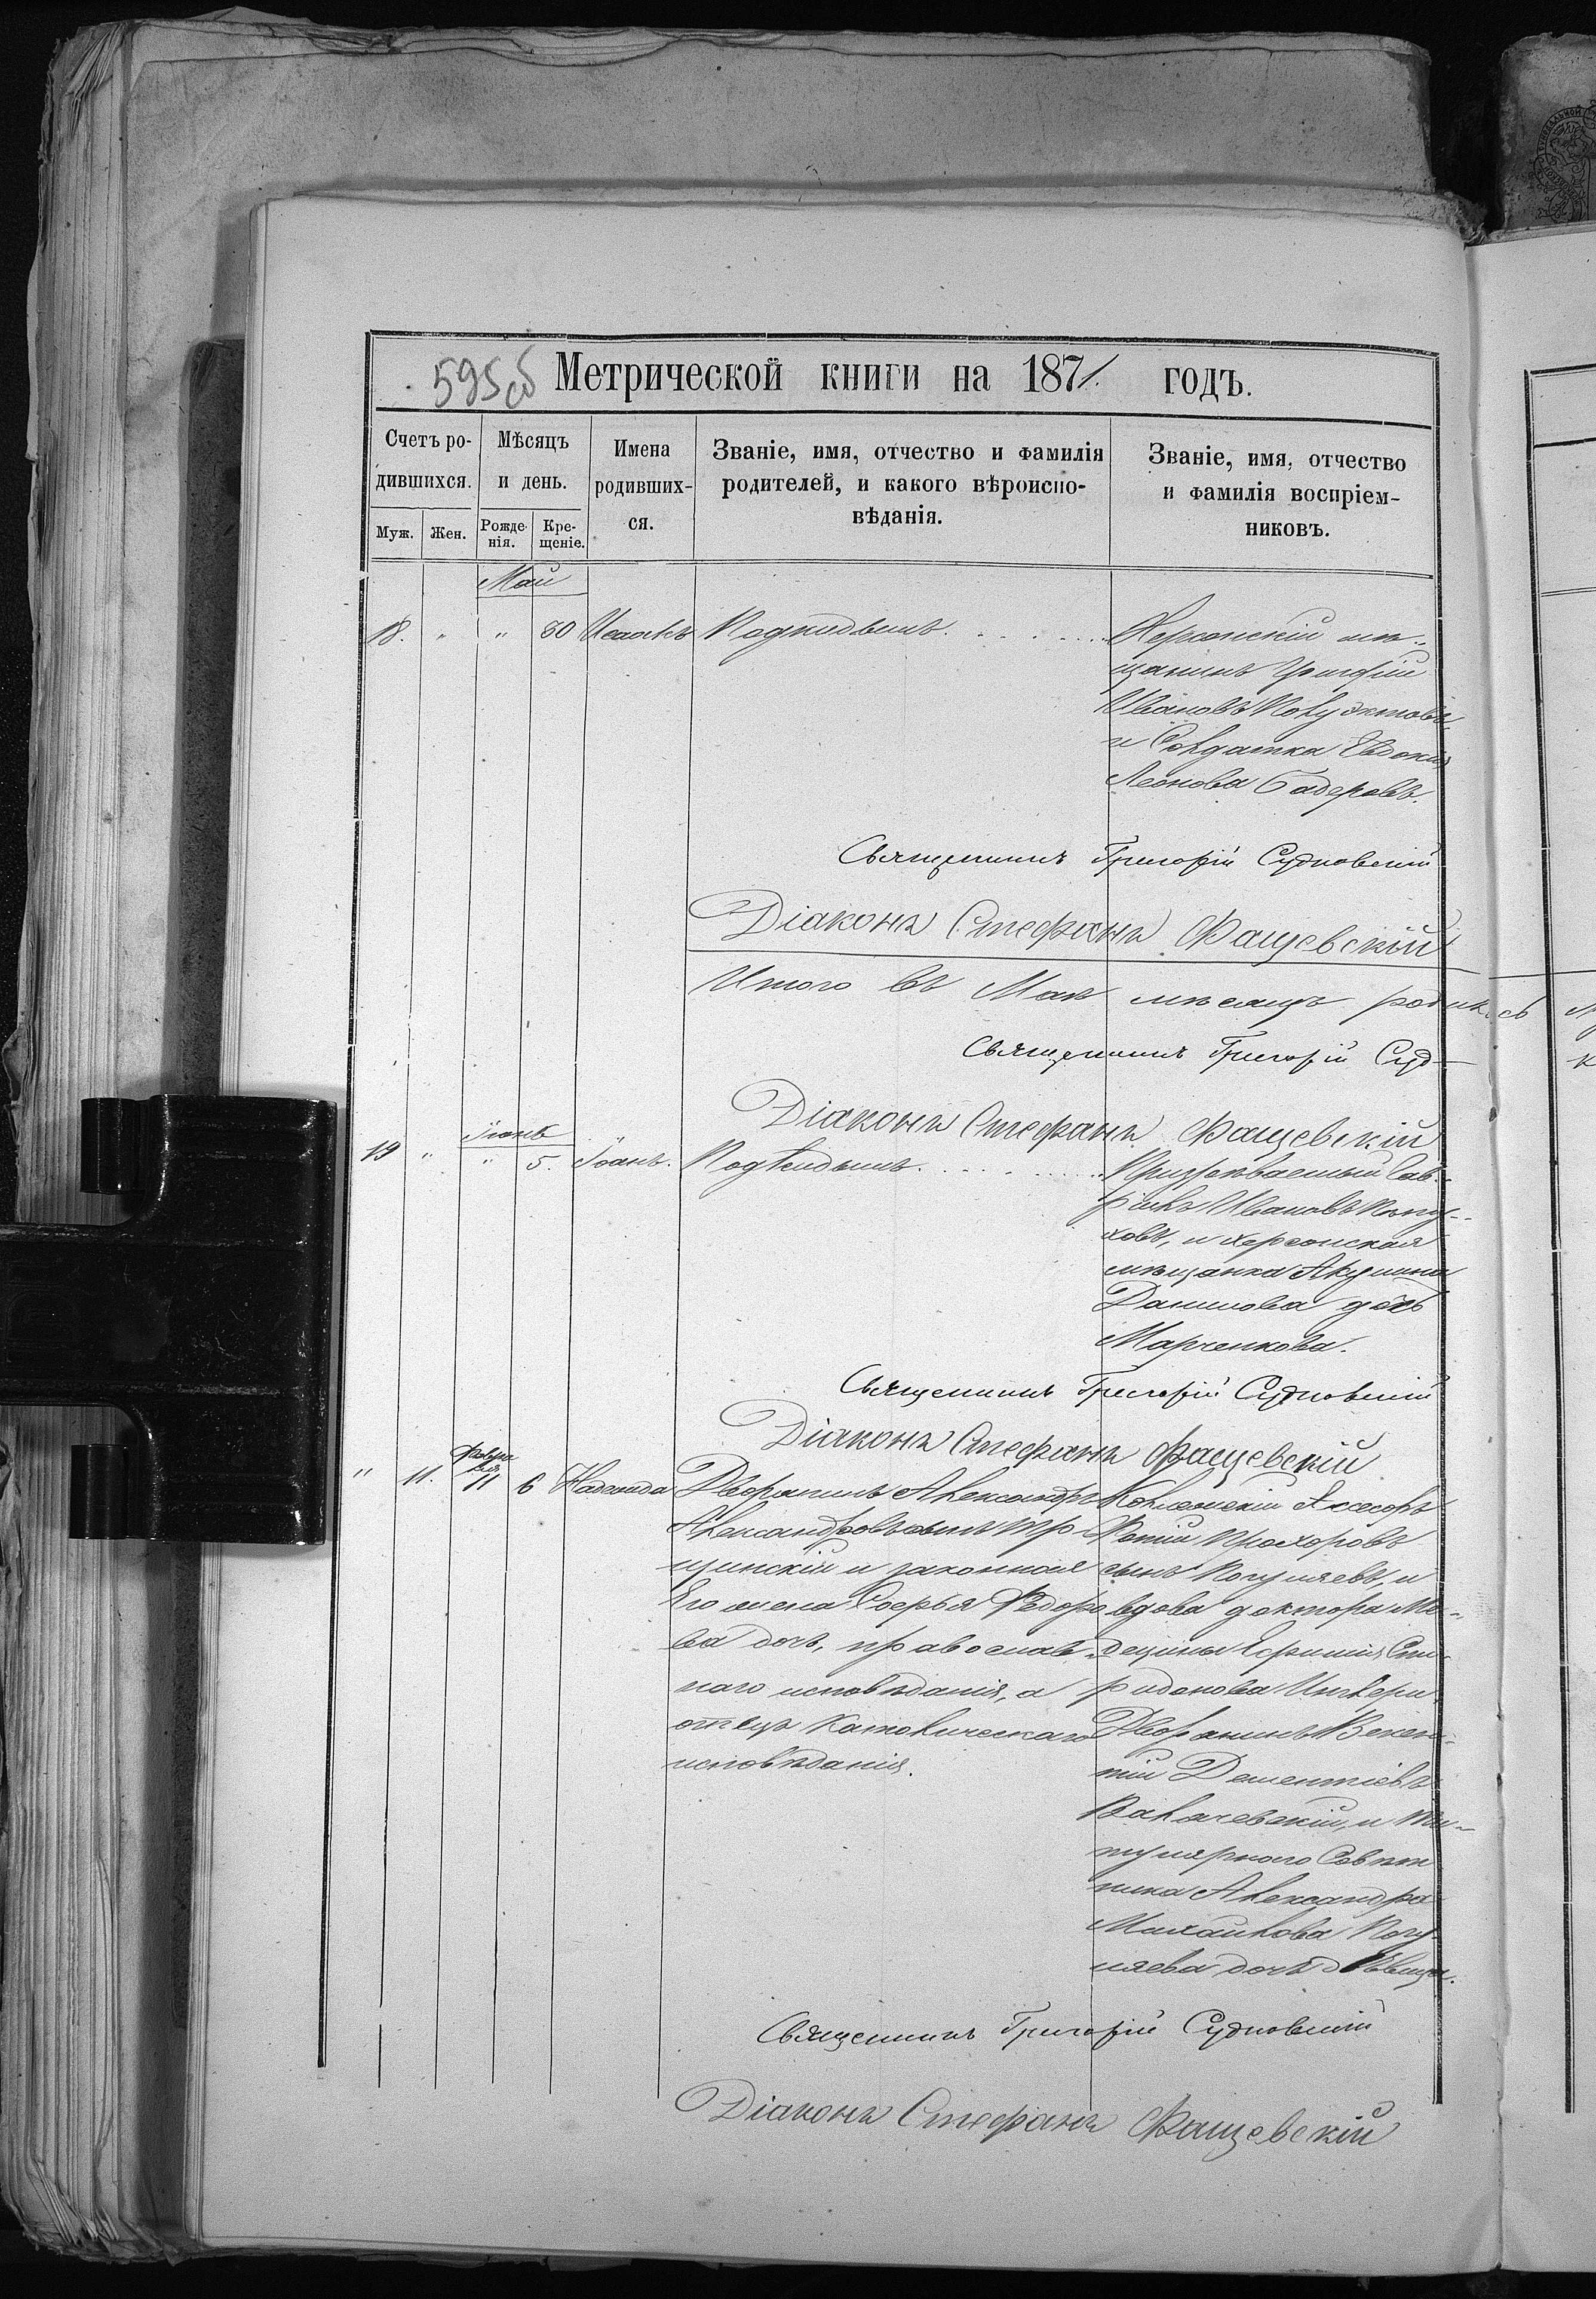 595об Метрической книги на 1871. годъ.
Счетъ ро-
дившихся.
Мѣсяцъ
и день.
Имена
родивших-
ся.
Званіе, имя, отчество и фамилія
родителей, и какого вѣроиспо-
вѣданія.
Званіе, имя, отчество
и фамилія воспріем-
никовъ.
Муж. Жен. Рожде-
нія. Кре-
щеніе.
Май
18. " " 30 Исаакъ Подкидышъ. Херсонскій мѣ-
щанинъ Григорій
Ивановъ Полуэктовъ,
и Солдатка Евдокія
Леонова
Священникъ Григорій Судковскій
Діаконъ Стефанъ Фащевскій
Итого въ Маѣ мѣсяцѣ родилось
Священникъ Григорій Суд-
Діаконъ Стефанъ Фащевскій
Іюнь
19 " " 5. Іоанъ. Подкидышъ. Призрѣваемый Гав-
рінлъ Ивановъ
ховъ, и херсонская
мѣщанка Акулина
Данилова дочь
Марченкова.
Священникъ Григорій Судковскій
Діаконъ Стефанъ Фащевскій
Февра
ля
" 11. 11 6 Надежда Дворянинъ Александръ
Александровъ сынъ
щинскій и законная
Его жена Софья Ѳедоро
ва дочь, православ-
наго исповѣданія, а
отецъ Католическаго
исповѣданія.
Коллежскій Ассесоръ
Фотій Прохоровъ
сынъ Погуляевъ, и
вдова доктора Ме-
децины Ефимія Спи-
ридонова
Дворянинъ Викен-
тій Дементіевъ
и Ти-
тулярного Совѣт
ника Александра
Михаилова Погу-
ляева дочь дѣвица.
Священникъ Григорій Судковскій
Діаконъ Стефанъ Фащевскій